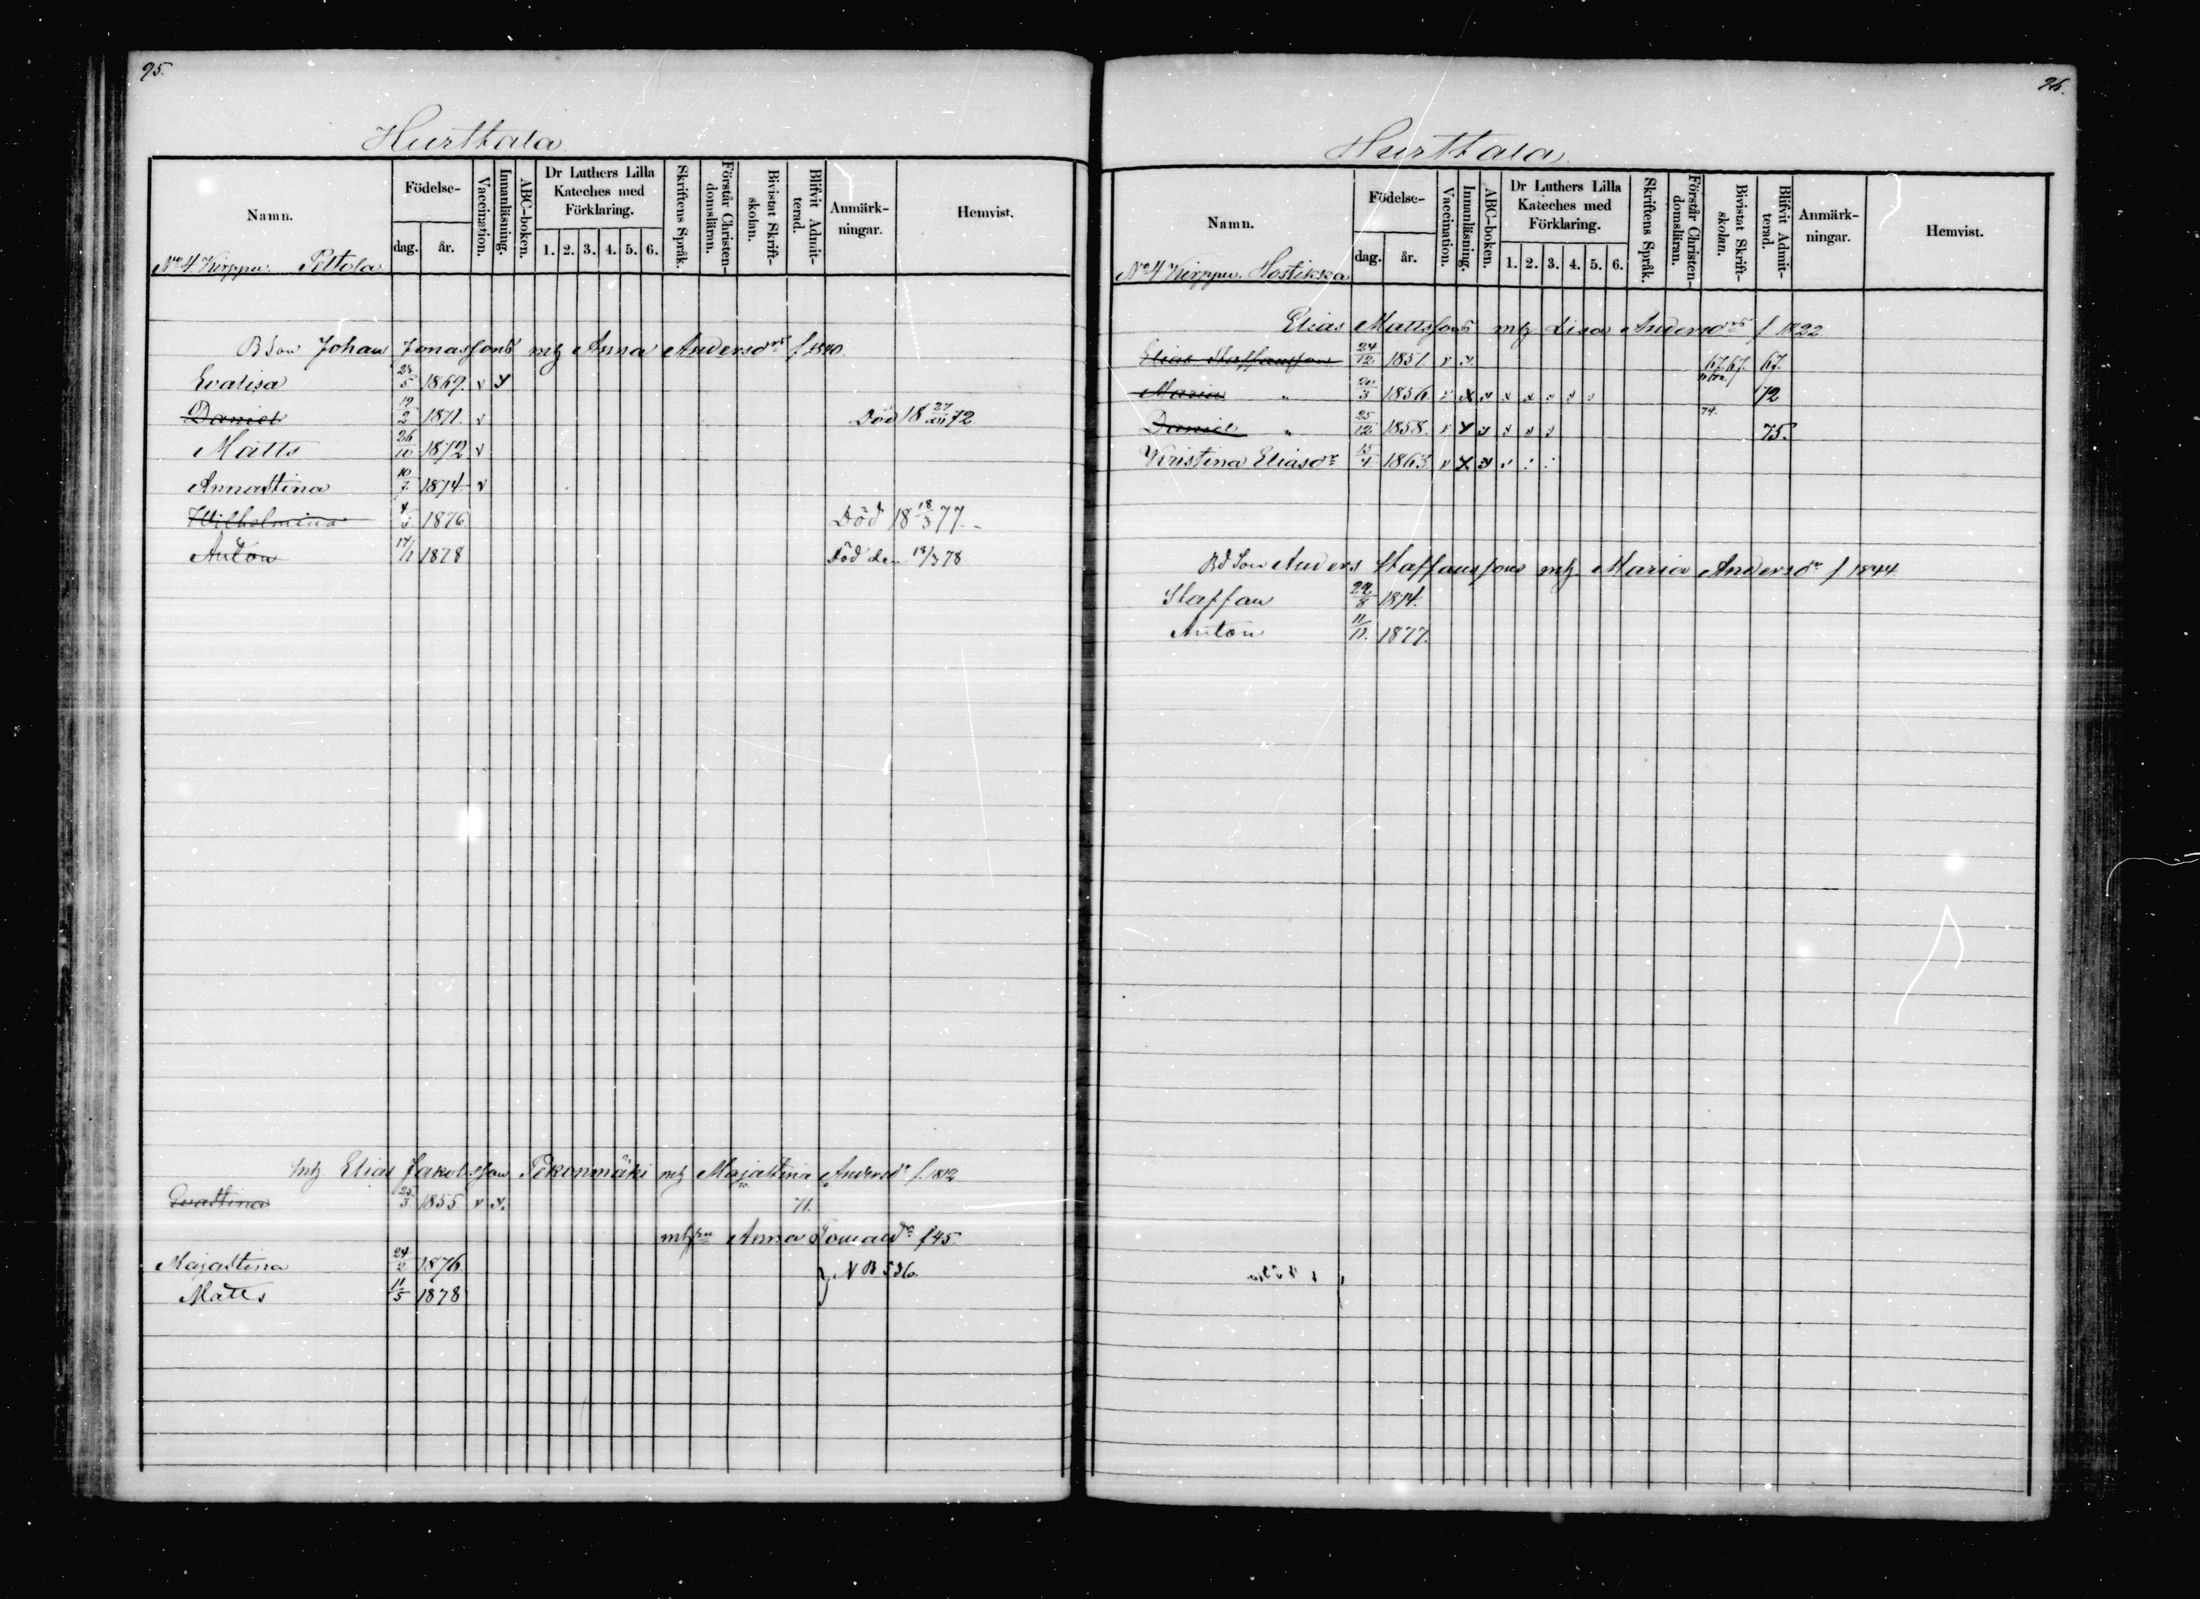 95.
Hurttala
Namn.
Födelse-
dag.
år.
Vaccination.
Innanläsning.
ABC-boken.
Dr Luthers Lilla Kateches med Förklaring.
1. 2. 3. 4. 5. 6.
Skriftens Språk.
Förstår Christendomsläran.
Bivistat Skriftskolan.
Blifvit Admitterad.
Anmärkningar.
Hemvist.
No 4 Kirppu. Peltola
Johan Jonasson mh Anna Andersdr f 1840.
Evalisa 5 1869. v
Daniel 19/2 1871. v Död 18 72
Matts 26/10 1872 v
Annastina 10/7 1874. v
Wilhelmina 1876 Död 18 18/3 77.
Anton 17/1 1878 Död den 18/3 78
Elias Jakobsson Pekonmäki mh Majastina Andersdr f. 1812
Evastina 3 1855 v 71.
Anna Tomasdr f 45.
Majastina 24/2 1876.
N B 536.
Matts 11/5 1878
96.
Hurttala
Namn.
Födelse-
dag.
år.
Vaccination.
Innanläsning.
ABC-boken.
Dr Luthers Lilla Kateches med Förklaring.
1. 2. 3. 4. 5. 6.
Skriftens Språk.
Förstår Christendomsläran.
Bivistat Skriftskolan.
Blifvit Admitterad.
Anmärkningar.
Hemvist.
No 4 Kirppu. Hostikka
Elias Mattsson mh Lisa Andersdr f 1822
Elias Staffansson 24/12 1851 v 67. 67. 67.
Maria " 20/3 1856. 72
Daniel " 25/12 1858. v 74. 75.
Kristina Eliasdr 1863. v
Anders Staffansson mh Maria Andersdr f 1844
Staffan 8 1874.
Anton 11/11. 1877.